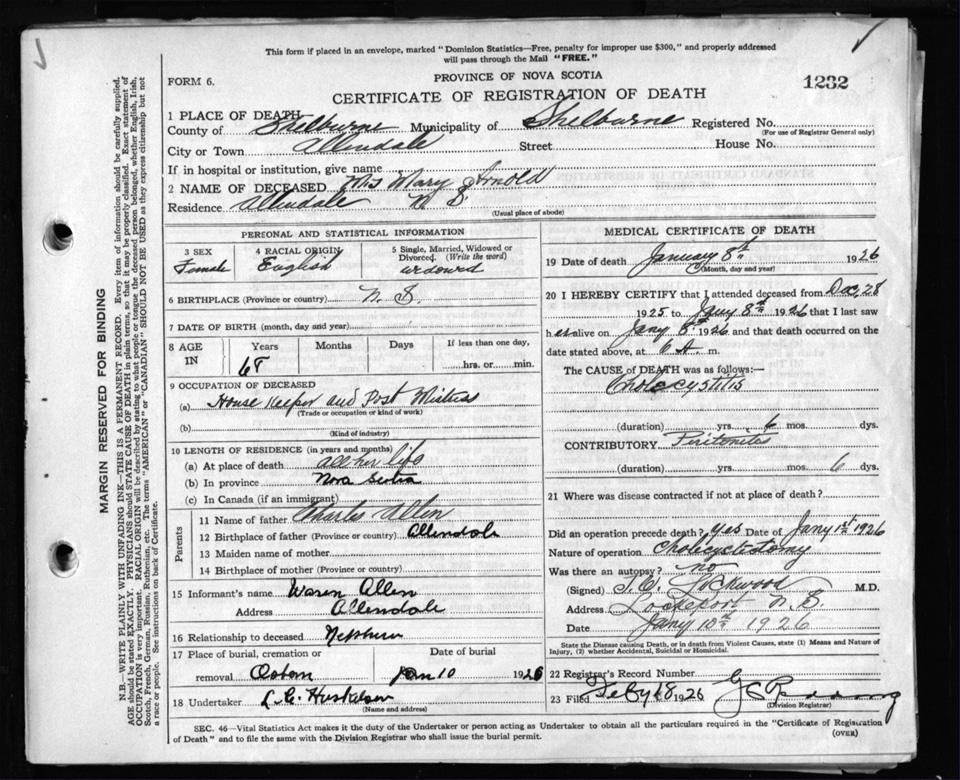 This form if placed in an envelope, marked "Dominion Statistics—Free, penalty for improper use $300," and properly addressed
will pass through the Mail "FREE."
FORM 6.
PROVINCE OF NOVA SCOTIA
1232
CERTIFICATE OF REGISTRATION OF DEATH
1 PLACE OF DEATH
County of Shelburne Municipality of Shelburne Registered No.
(For use of Registrar General only)
City or Town Allendale Street House No.
If in hospital or institution, give name
2 NAME OF DECEASED Mrs Mary Arnold
Residence Allendale N S
(Usual place of abode)
PERSONAL AND STATISTICAL INFORMATION
3 SEX Female
4 RACIAL ORIGIN English
5 Single, Married, Widowed or Divorced. (Write the word) widowed
6 BIRTHPLACE (Province or country) N. S.
7 DATE OF BIRTH (month, day and year)
8 AGE IN Years Months Days If less than one day,
68 hrs. or min.
9 OCCUPATION OF DECEASED
(a) House Keeper and Post Mistress
(Trade or occupation or kind of work)
(b)
(Kind of industry)
10 LENGTH OF RESIDENCE (in years and months)
(a) At place of death all her life
(b) In province Nova Scotia
(c) In Canada (if an immigrant)
Parents
11 Name of father Charles Allen
12 Birthplace of father (Province or country) Allendale
13 Maiden name of mother
14 Birthplace of mother (Province or country)
15 Informant's name Waren Allen
Address Allendale
16 Relationship to deceased Nephew
17 Place of burial, cremation or removal Date of burial
Jan 10 1926
18 Undertaker
(Name and address)
MEDICAL CERTIFICATE OF DEATH
19 Date of death January 8th 1926
(Month, day and year)
20 I HEREBY CERTIFY that I attended deceased from Dec. 28
1925 to Jany 8th 1926 that I last saw
h er alive on Jany 8th 1926 and that death occurred on
date stated above, at 6 A. m.
The CAUSE of DEATH was as follows:
Cholecystitis
(duration) yrs. 6 mos. dys.
CONTRIBUTORY Peritonitis
(duration) yrs. mos. 6 dys.
21 Where was disease contracted if not at place of death?
Did an operation precede death? yes Date of Jany 1st 1926
Nature of operation Cholecystotomy
Was there an autopsy? no
(Signed) Lockwood M.D.
Address Lockeport N.S.
Date Jany 10th 1926
State the Disease causing Death, or in death from Violent Causes, state (1) Means and Nature of
Injury, (2) whether Accidental, Suicidal or Homicidal.
22 Registrar's Record Number
23 Filed Feby 18 1926
(Division Registrar)
SEC. 46—Vital Statistics Act makes it the duty of the Undertaker or person acting as Undertaker to obtain all the particulars required in the "Certificate of Registration
of Death" and to file the same with the Division Registrar who shall issue the burial permit.
(OVER)
MARGIN RESERVED FOR BINDING
N.B.—WRITE PLAINLY WITH UNFADING INK—THIS IS A PERMANENT RECORD. Every item of information should be carefully supplied.
AGE should be stated EXACTLY. PHYSICIANS should STATE CAUSE OF DEATH in plain terms, so that it may be properly classified. Exact statement of
OCCUPATION is very important. RACIAL ORIGIN will be described by stating to what people or tongue the deceased person belonged, whether English, Irish,
Scotch, French, German, Russian, Ruthenian, etc. The terms "AMERICAN" or "CANADIAN" SHOULD NOT BE USED as they express citizenship but not
a race or people. See instructions on back of Certificate.